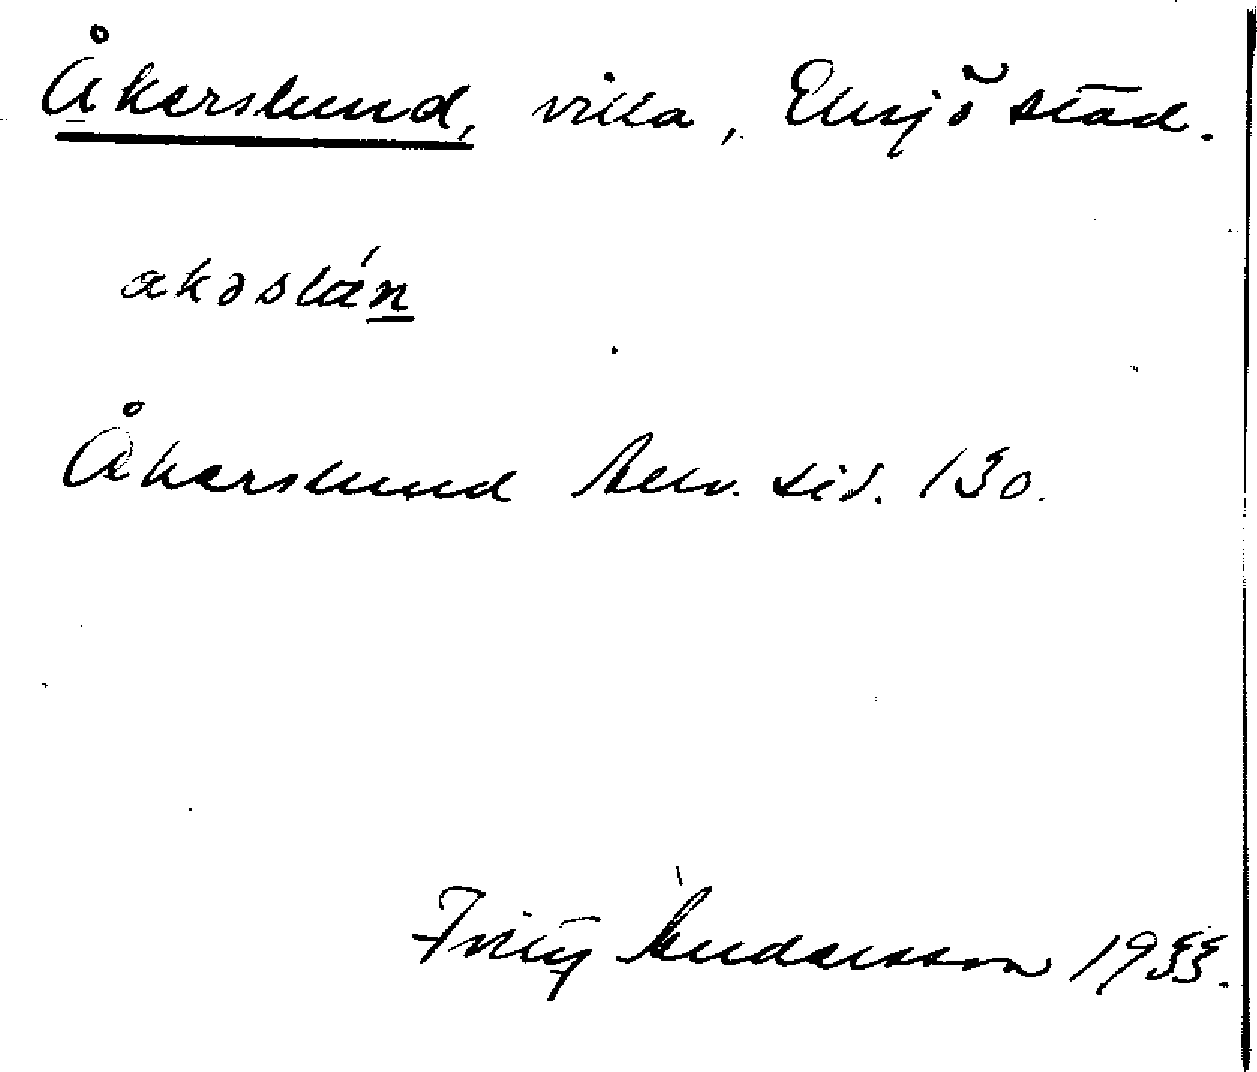 Åkerslund, villa, Eksjö stad.
akəslán
Åkerslund Aekv. sid. 130.
Fritz Andersson 1933.